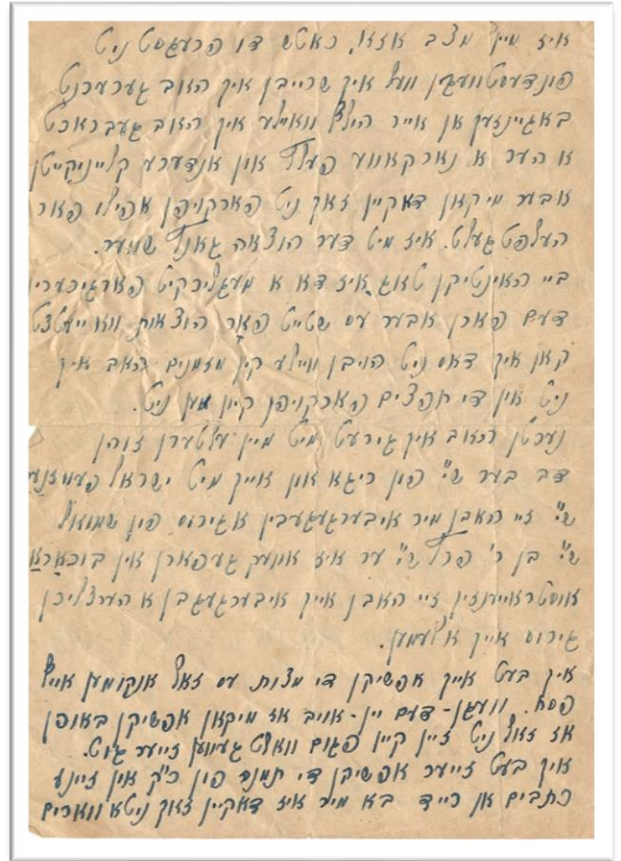 איז מיין מצב אזא, כאטש דו פרעגסט ניט
פונדעסטוועגן וועל איך שרייבן איך האב גערעכנט
באגיינזען אן אייר הילף וואיילע איך האב געבראכט
א הער א נארקאווע פעלץ און אנדערע קלייניקייטן
אבער מי קאן דא קיין זאך ניט פארקויפן אפילו פאר
העלפט געלט. איז מיט דער הוצאה גאנץ שווער.
ביי האינטיקן טאג איז דא א מעגליכקיט
דעם פארן אבער עס שטייט פאר הוצאות וואס יעטצט
קאן איך דאס ניט הויבן ווילע קין מזומנים האב איך
ניט אין די חפצים פארקויפן קיון מען ניט.
נעכטן האב איך גירעט מיט מיין עלטערן זוהן
דב בער שי' פון ריגא און אייך מיט ישראל
שי' זיי האבן מיר איבערגעגעבין א גירוס פון שמואל
שי' בן ר' פרץ שי' ער איז אוועק געפארן אין בוכארא
זיי האבן אייך איבערגעגבן א הערצליכן
גירוס אייך אלעמען.
איך בעט אייך אפשיקן די מצות עס זאל אנקומען אויף
פסח. וועגן-דעם יין-אויב אז מי קאן אפשיקן באופן
אז זאל ניט זיין קיין פגום וואלט געווען זייער גוט.
איך בעט זייער אפשיקן די תמונה פון כ"ק אין זיינע
כתבים אן רייד בא מיר איז דא קיין זאך ניטא ווארים